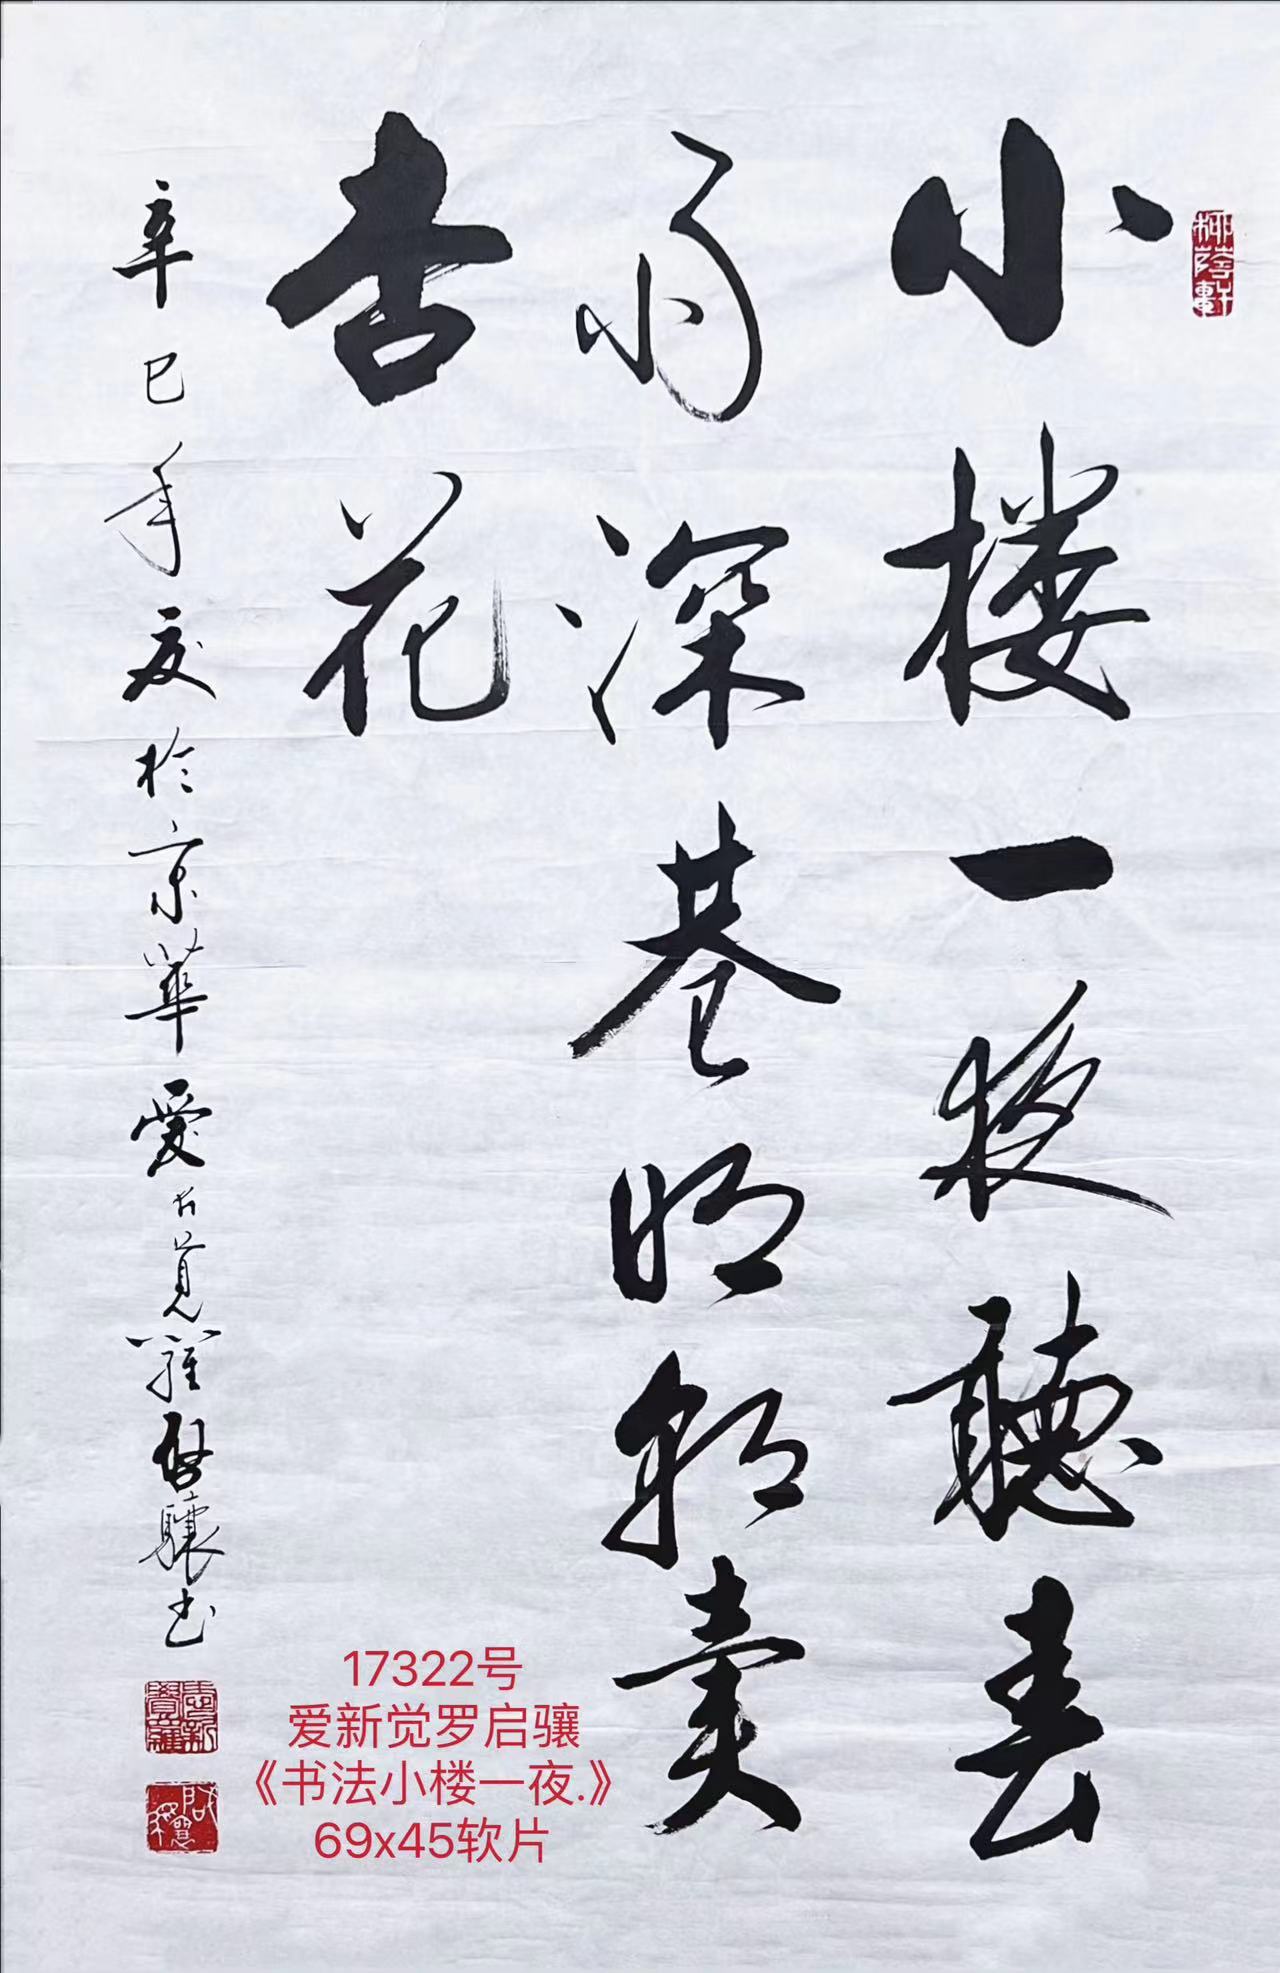 小楼一夜聽春
雨深巷明朝賣
杏花
辛巳年夏於京華愛新覚羅啟驤书
柳蔭軒
17322号
爱新觉罗启骧
《书法小楼一夜.》
69x45软片